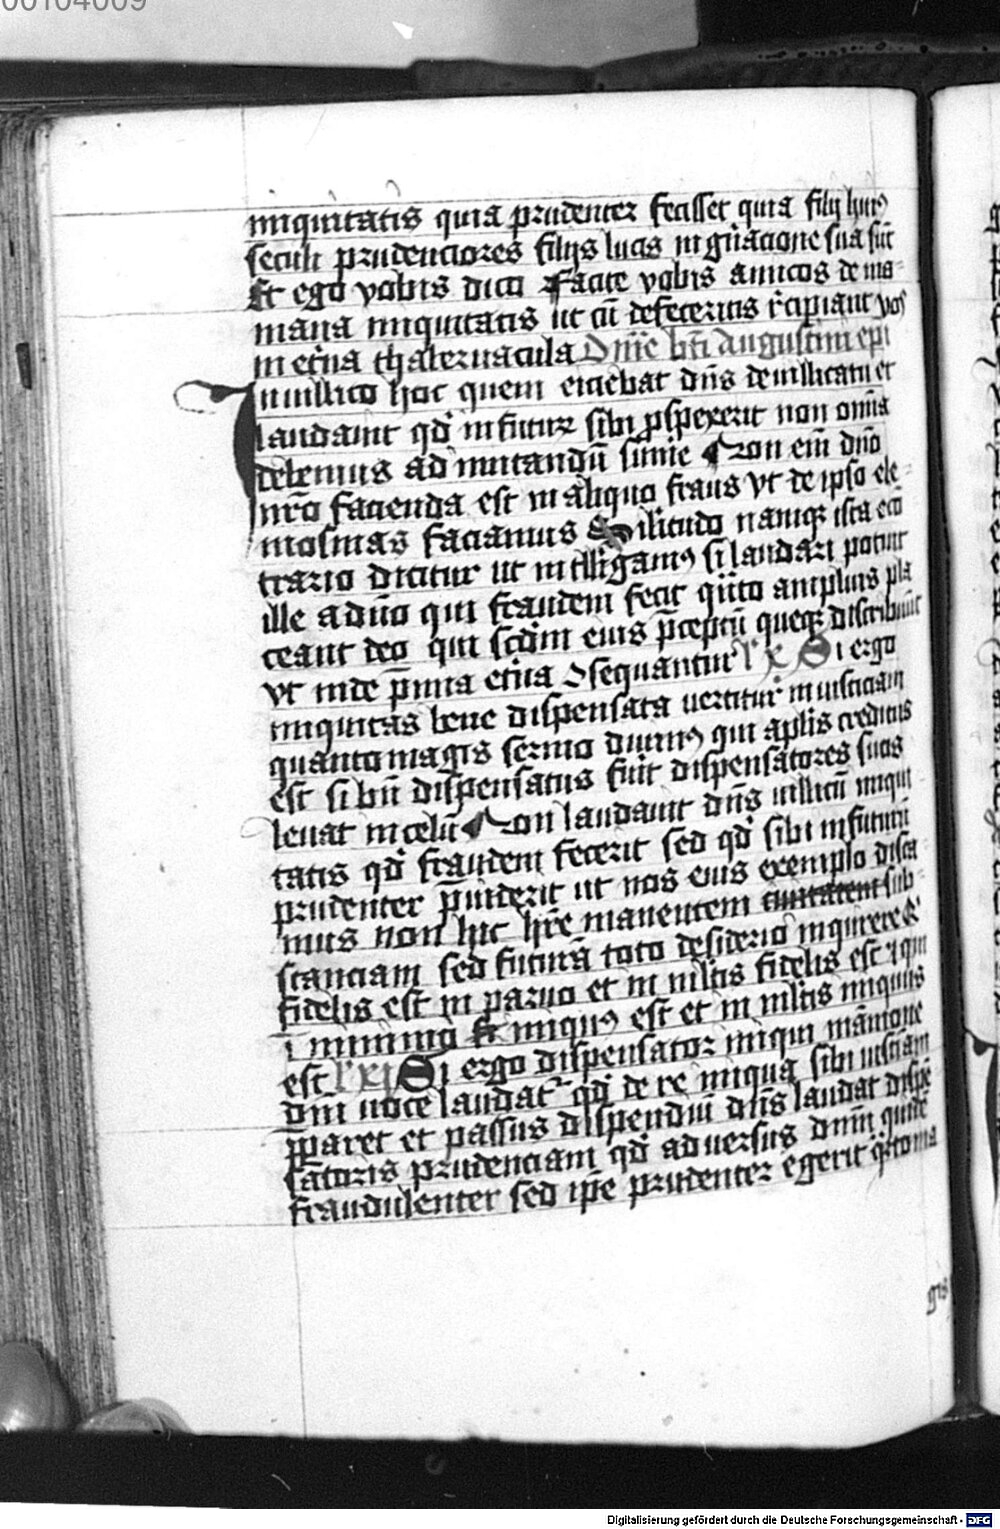 00104009
iniquitatis quia prudenter fecisset quia filij huiꝰ
seculi prudenciores filijs lucis in gnacione sua sūt
Et ego vobis dico Facite vobis amicos de ma-
mana iniquitatis ut cū defeceritis rcipiant vos
in etna thabernacula Om̄e bti Augustini epi
In uillico hoc quem eiciebat dn̄s de uillicatu et
laudauit qđ in futurꝝ sibi ꝑspexerit non omia
debemus ad imitandū sumere Non em̄ dn̄o
nr̄o facienda est in aliquo fraus vt de ipso ele-
mosinas faciamus Similitudo namqꝫ ista ecō
trario dicitur ut intelligamꝰ si laudari potuit
ille a dn̄o qui fraudem fecit qn̄to amplius pla
ceant deo qui scd̄m eius p̄ceptū queqꝫ distribuūt
vt inde p̄mia etna ꝯsequantur lx Si ergo
iniquitas bene dispensata uertitur in iusticiam
quanto magis sermo diuinꝰ qui aplis creditus
est si bn̄ dispensatus fuit dispensatores suos
leuat in celū Non laudauit dn̄s uillicū iniqui
tatis qđ fraudem fecerit sed qđ sibi in futurū
prudenter p̄uiderit ut nos eius exemplo disca
mus non hic hr̄e manentem ciuitatem sub-
stanciam sed futurā toto desiderio inquirere Et
fidelis est in paruo et in mltis fidelis est ⁊ qui
ī minimo Et iniqꝰ est et in mltis iniquus
est lxj Si ergo dispensator iniqui māmone
dn̄i uoce laudatʳ qđ de re iniqua sibi iusticiam
p̄paret et passus dispendiū dn̄s laudat dispē
satoris prudenciam qđ aduersus dn̄m quidē
fraudulenter sed ip̄e prudenter egerit qn̄to ma
gis
Digitalisierung gefördert durch die Deutsche Forschungsgemeinschaft - DFG